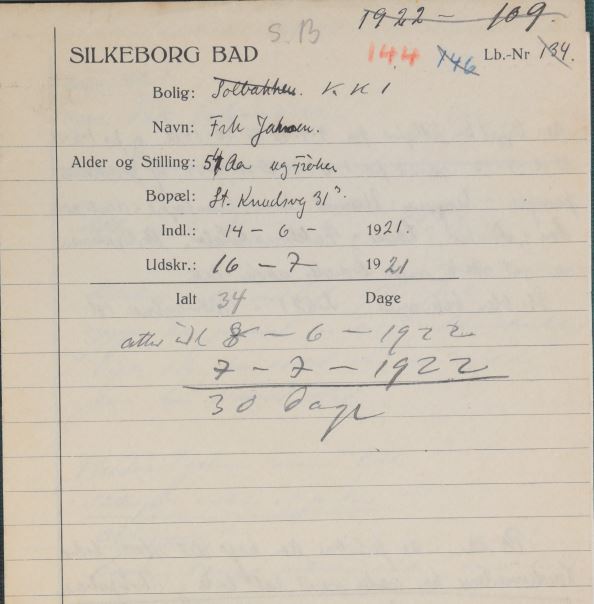 1922 - 109.
S.B
SILKEBORG BAD 144 146 Lb.-Nr 134.
Bolig: Solbakken. K. K 1
Navn: Frk Jansen.
Alder og Stilling: 54 Aa ug Frøken
Bopæl: St. Knudsvg 31³.
Indl.: 14 - 6 - 1921.
Udskr.: 16 - 7 - 1921
Ialt 34 Dage
atter 8 - 6 - 1922
7 - 7 - 1922
30 Dage